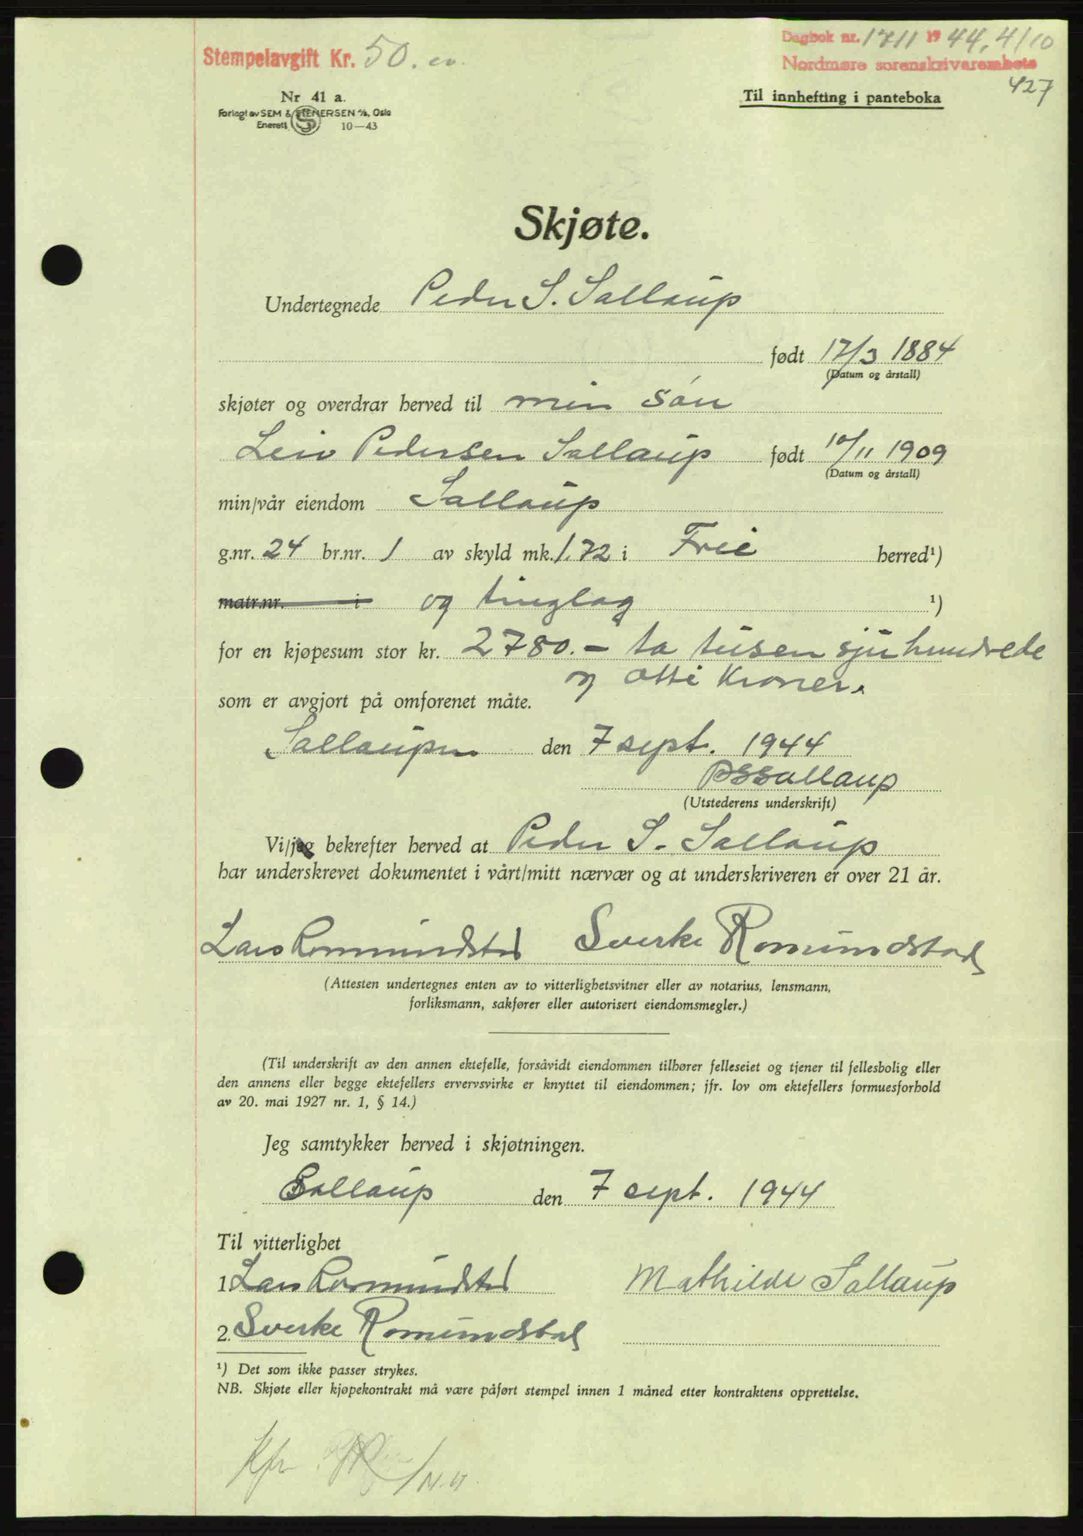 Stempelavgift Kr. 50.
Dagbok nr. 1711 1944, 4/10
Nordmøre sorenskriverembete
427
Nr 41 a.
Forlagt av SEM & STENERSEN A/S, Oslo
Enerett S 10—43
Til innhefting i panteboka
Skjøte.
Undertegnede Peder S. Sallaup
født 17/3 1884
(Datum og årstall)
skjøter og overdrar herved til min søn
Leiv Pedersen Sallaup født 10/11 1909
(Datum og årstall)
min/vår eiendom Sallaup
g.nr. 24 br.nr. 1 av skyld mk. 1.72 i Frei herred¹)
matr.nr. i og tinglag ¹)
for en kjøpesum stor kr. 2780.– to tusen sju hundrede
og otti kroner.
som er avgjort på omforenet måte.
Sallaupen den 7 sept. 1944
PSSallaup
(Utstederens underskrift)
Vi/jeg bekrefter herved at Peder S. Sallaup
har underskrevet dokumentet i vårt/mitt nærvær og at underskriveren er over 21 år.
Lars Romundstad Sverke Romundstad
(Attesten undertegnes enten av to vitterlighetsvitner eller av notarius, lensmann,
forliksmann, sakfører eller autorisert eiendomsmegler.)
(Til underskrift av den annen ektefelle, forsåvidt eiendommen tilhører felleseiet og tjener til fellesbolig eller
den annens eller begge ektefellers ervervsvirke er knyttet til eiendommen; jfr. lov om ektefellers formuesforhold
av 20. mai 1927 nr. 1, § 14.)
Jeg samtykker herved i skjøtningen.
Sallaup den 7 sept. 1944
Til vitterlighet
1. Lars Romundstad Mathilde Sallaup
2. Sverke Romundstad
¹) Det som ikke passer strykes.
NB. Skjøte eller kjøpekontrakt må være påført stempel innen 1 måned etter kontraktens opprettelse.